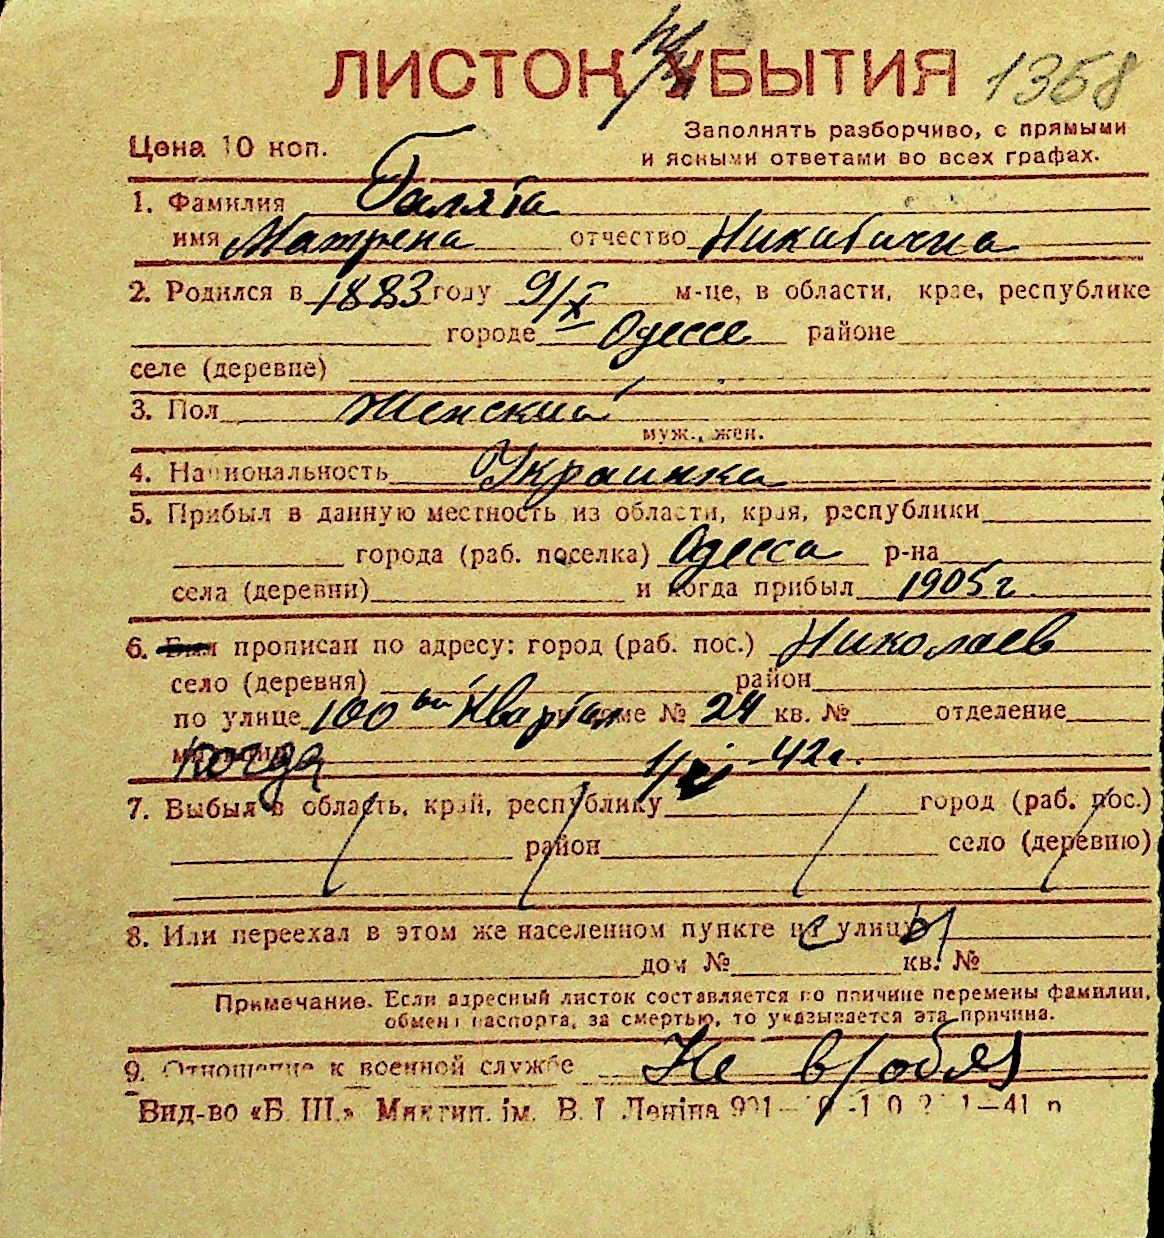 ЛИСТОК УБЫТИЯ 1358
Цена 10 коп.
Заполнять разборчиво, с прямыми
и ясными ответами во всех графах.
1. Фамилия Галята
имя Матрена отчество Никитична
2. Родился в 1883 году 9/X м-це, в области, крае, республике
городе Одессе районе
селе (деревне)
3. Пол Женский
муж., жен.
4. Национальность Украинка
5. Прибыл в данную местность из области, края, республики
города (раб. поселка) Одесса р-на
села (деревни) и когда прибыл 1905 г.
6. прописан по адресу: город (раб. пос.) Николаев
село (деревня) район
по улице 100 ый Квартал доме № 24 кв. № отделение
когда 42 г.
7. Выбыл в область, край, республику город (раб. пос.)
район село (деревню)
8. Или переехал в этом же населенном пункте на улицу
дом № кв. №
Примечание. Если адресный листок составляется по причине перемены фамилии,
обмена паспорта, за смертью, то указывается эта причина.
9. Отношение к военной службе Не в/обяз
Вид-во «Б. Ш.» ім. В. І. Леніна